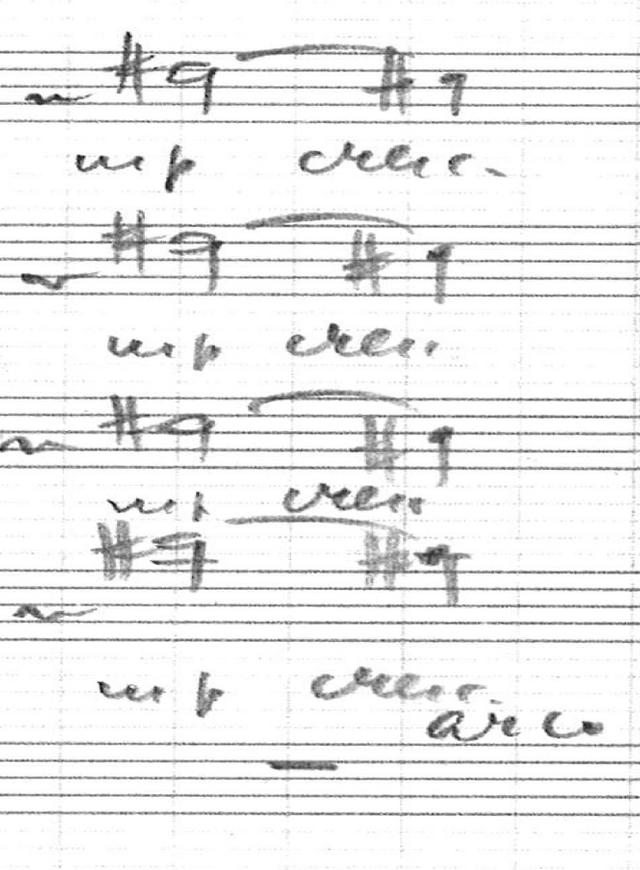 mp cresc.
mp cresc.
mp cresc.
mp cresc.
arco